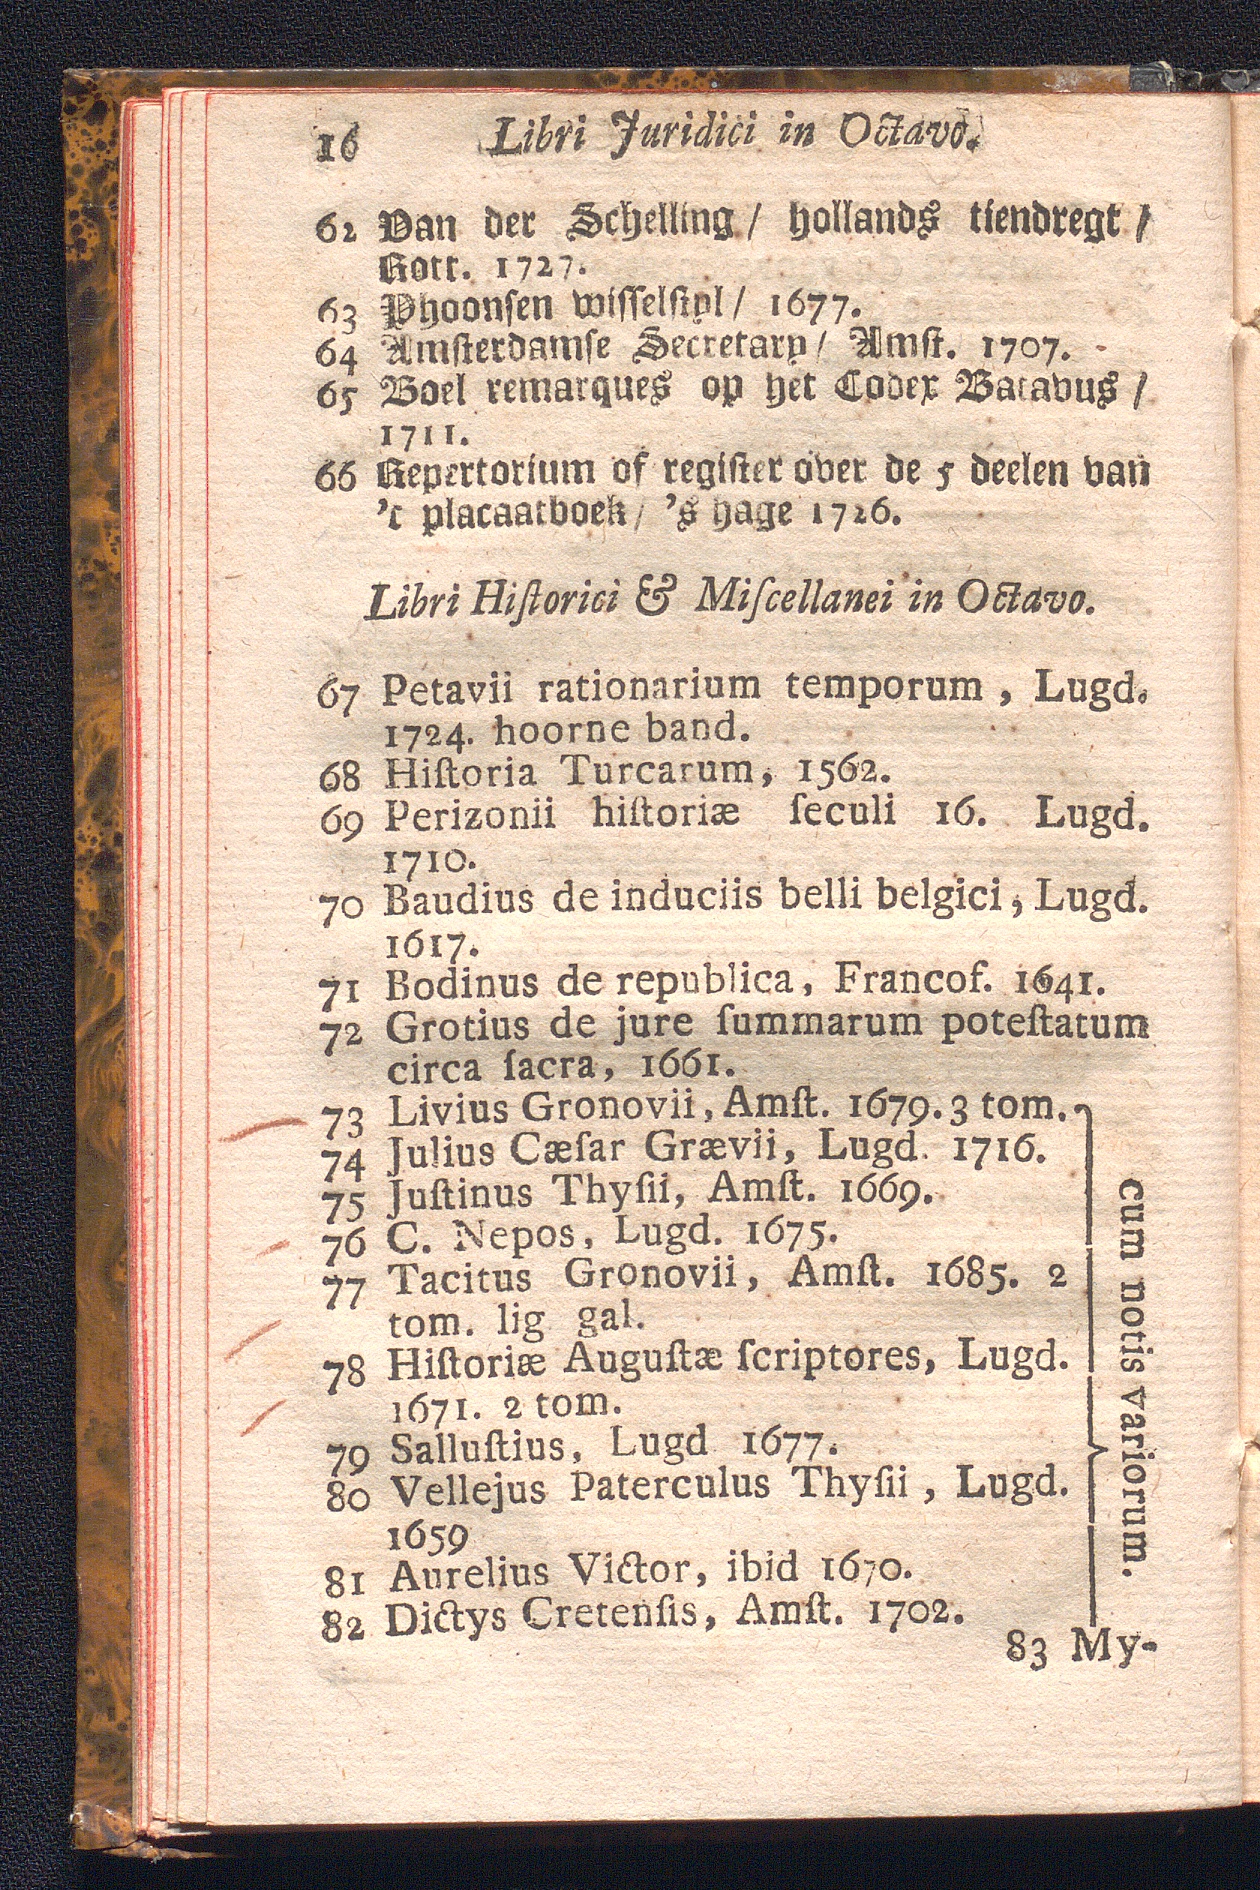 16 Libri Juridici in Octavo.
62 Van der Schelling / hollands tiendregt /
Rott. 1727.
63 Phoonsen wisselstyl / 1677.
64 Amsterdamse Secretary / Amst. 1707.
65 Boel remarques op het Codex Batavus /
1711.
66 Repertorium of register over de 5 deelen van
't placaatboek / 's hage 1726.
Libri Hiſtorici & Miſcellanei in Octavo.
67 Petavii rationarium temporum, Lugd.
1724. hoorne band.
68 Hiſtoria Turcarum, 1562.
69 Perizonii hiſtoriæ ſeculi 16. Lugd.
1710.
70 Baudius de induciis belli belgici, Lugd.
1617.
71 Bodinus de republica, Francof. 1641.
72 Grotius de jure ſummarum poteſtatum
circa ſacra, 1661.
73 Livius Gronovii, Amſt. 1679. 3 tom.
74 Julius Cæſar Grævii, Lugd. 1716.
75 Juſtinus Thyſii, Amſt. 1669.
76 C. Nepos, Lugd. 1675.
77 Tacitus Gronovii, Amſt. 1685. 2
tom. lig gal.
78 Hiſtoriæ Auguſtæ ſcriptores, Lugd.
1671. 2 tom.
79 Salluſtius, Lugd 1677.
80 Vellejus Paterculus Thyſii, Lugd.
1659
81 Aurelius Victor, ibid 1670.
82 Dictys Cretenſis, Amſt. 1702.
cum notis variorum.
83 My-